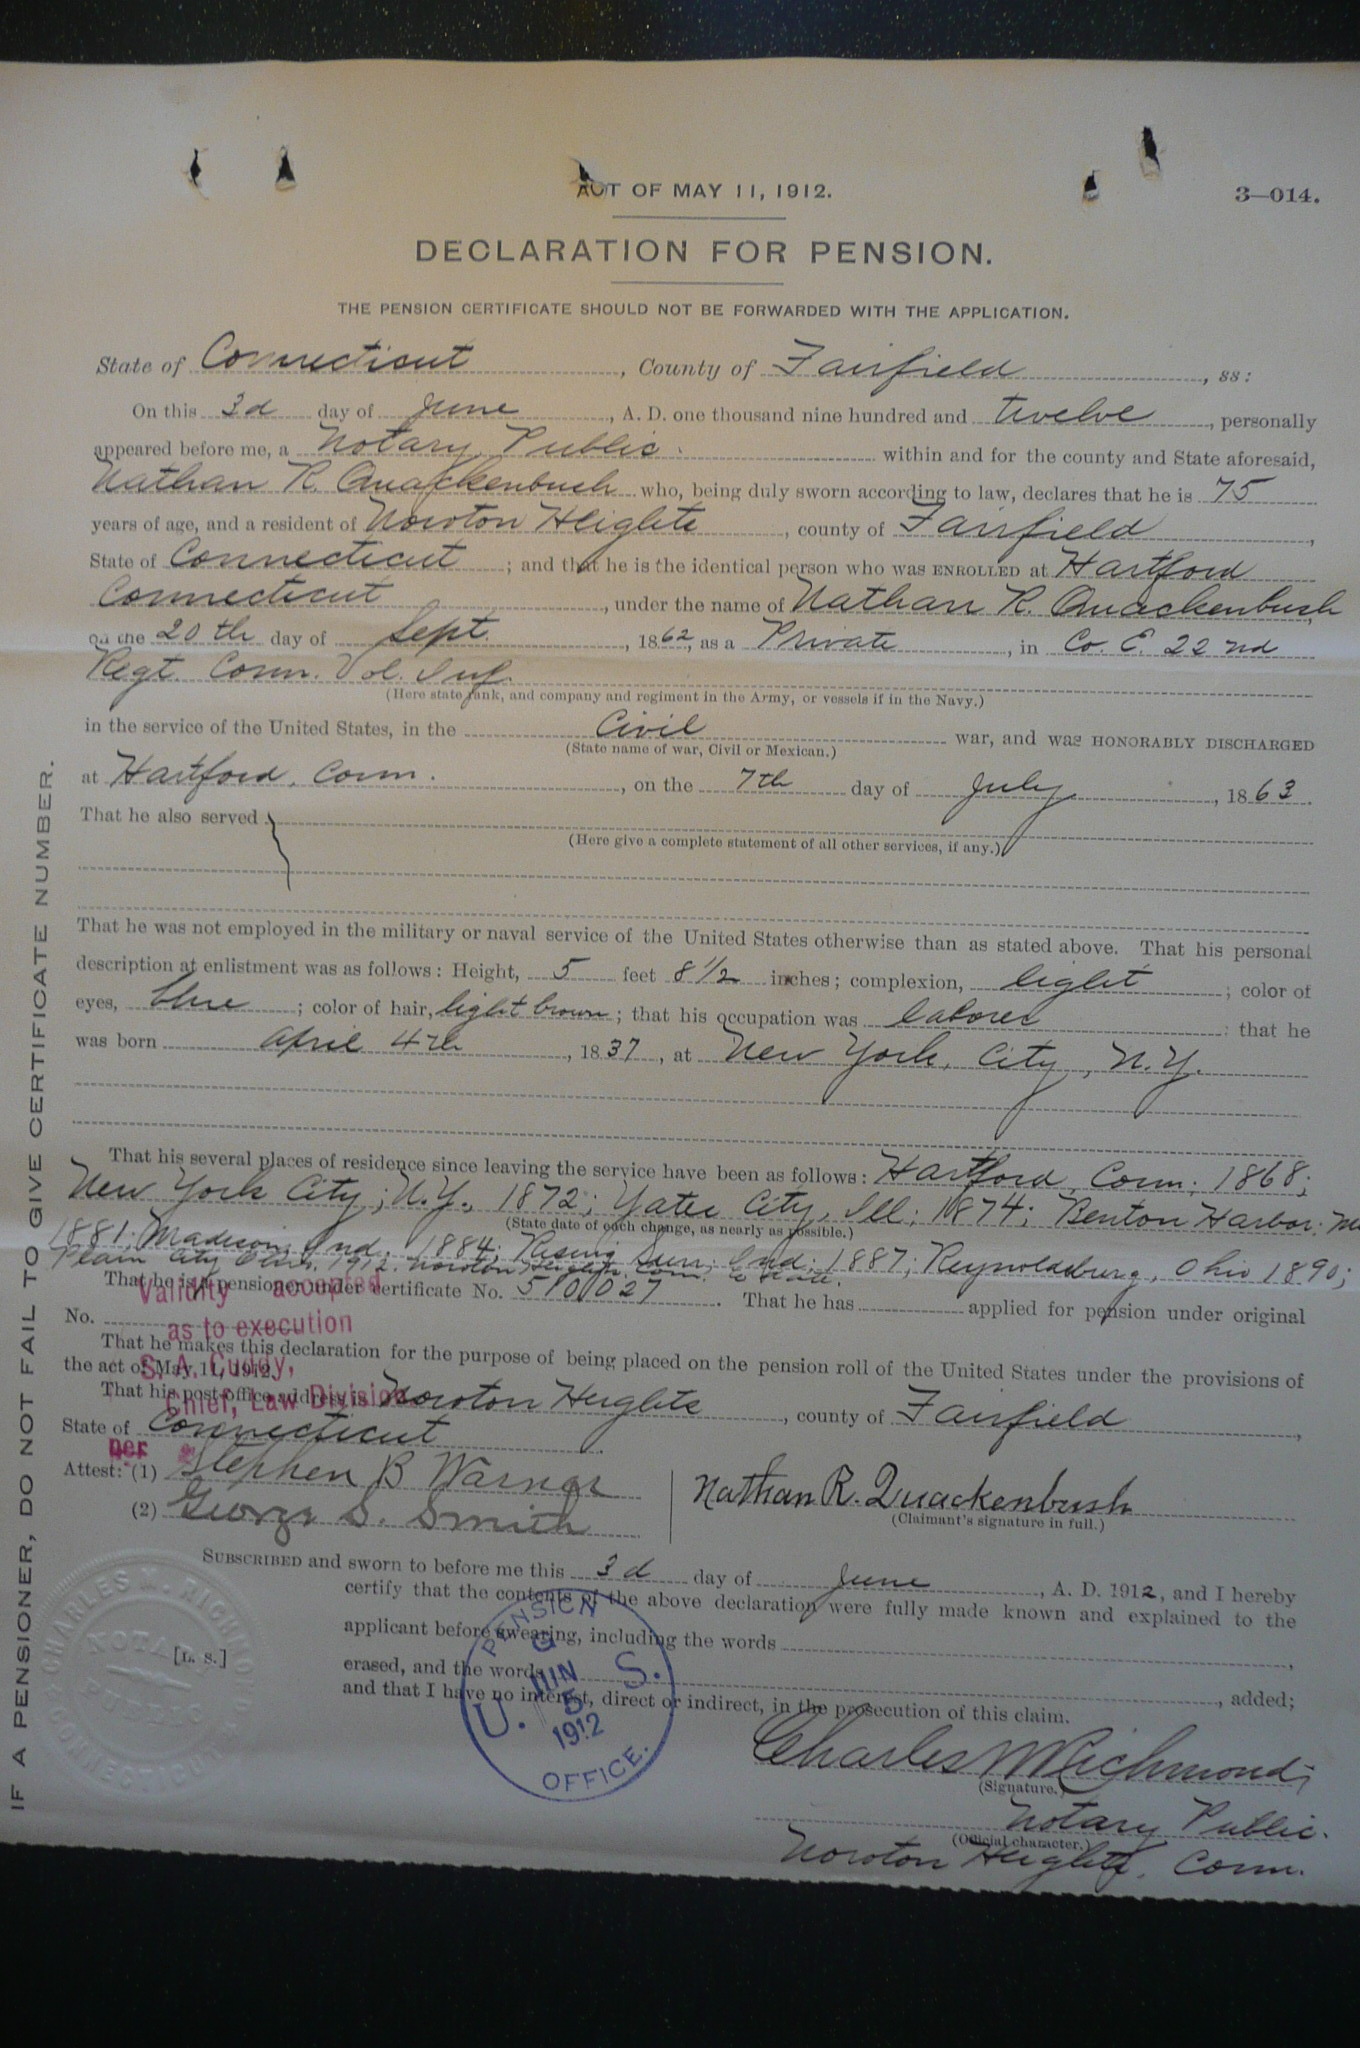 ACT OF MAY 11, 1912.
3—014.
DECLARATION FOR PENSION.
THE PENSION CERTIFICATE SHOULD NOT BE FORWARDED WITH THE APPLICATION.
State of Connecticut, County of Fairfield, ss:
On this 3d day of June, A. D. one thousand nine hundred and twelve, personally
appeared before me, a Notary Public within and for the county and State aforesaid,
Nathan R. Quackenbush who, being duly sworn according to law, declares that he is 75
years of age, and a resident of Noroton Heights, county of Fairfield,
State of Connecticut; and that he is the identical person who was ENROLLED at Hartford
Connecticut, under the name of Nathan R. Quackenbush,
on the 20th day of Sept., 1862, as a Private, in Co. E. 22nd
Regt. Conn. Vol. Inf.
(Here state rank, and company and regiment in the Army, or vessels if in the Navy.)
in the service of the United States, in the Civil war, and was HONORABLY DISCHARGED
(State name of war, Civil or Mexican.)
at Hartford, Conn., on the 7th day of July, 1863.
That he also served
(Here give a complete statement of all other services, if any.)
That he was not employed in the military or naval service of the United States otherwise than as stated above. That his personal
description at enlistment was as follows: Height, 5 feet 8 1/2 inches; complexion, light; color of
eyes, blue; color of hair, light brown; that his occupation was laborer; that he
was born April 4th, 1837, at New York, City, N.Y.
That his several places of residence since leaving the service have been as follows: Hartford, Conn; 1868;
New York City; N.Y., 1872; Yates City, Ill; 1874; Benton Harbor.
(State date of each change, as nearly as possible.)
1881; Madison, Ind. 1884; Rising Sun, Ind, 1887; Reynoldsburg, Ohio 1890;
Plain City Ohio, 1912. Noroton Heights, Conn. to date.
That he is a pensioner under certificate No. 510027. That he has applied for pension under original
No.
That he makes this declaration for the purpose of being placed on the pension roll of the United States under the provisions of
the act of May 11, 1912.
Validity accepted
as to execution
S. A. Cuddy,
Chief, Law Division
per
That his post-office address is Noroton Heights, county of Fairfield,
State of Connecticut.
Attest: (1) Stephen B Warner
(2) George S. Smith
Nathan R. Quackenbush
(Claimant's signature in full.)
SUBSCRIBED and sworn to before me this 3d day of June, A. D. 1912, and I hereby
certify that the contents of the above declaration were fully made known and explained to the
applicant before swearing, including the words,
erased, and the words, added;
and that I have no interest, direct or indirect, in the prosecution of this claim.
[L. S.]
CHARLES M. RICHMOND
NOTARY
PUBLIC
CONNECTICUT
PENSION
U. S.
JUN
5
1912
OFFICE.
Charles M Richmond;
(Signature.)
Notary Public.
(Official character.)
Noroton Heights, Conn.
IF A PENSIONER, DO NOT FAIL TO GIVE CERTIFICATE NUMBER.